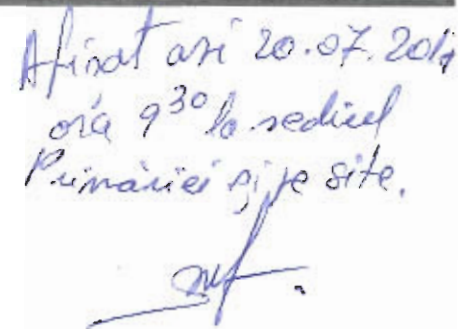 Afișat azi 20.07.201
ora 9³⁰ la sediul
Primăriei și pe site.